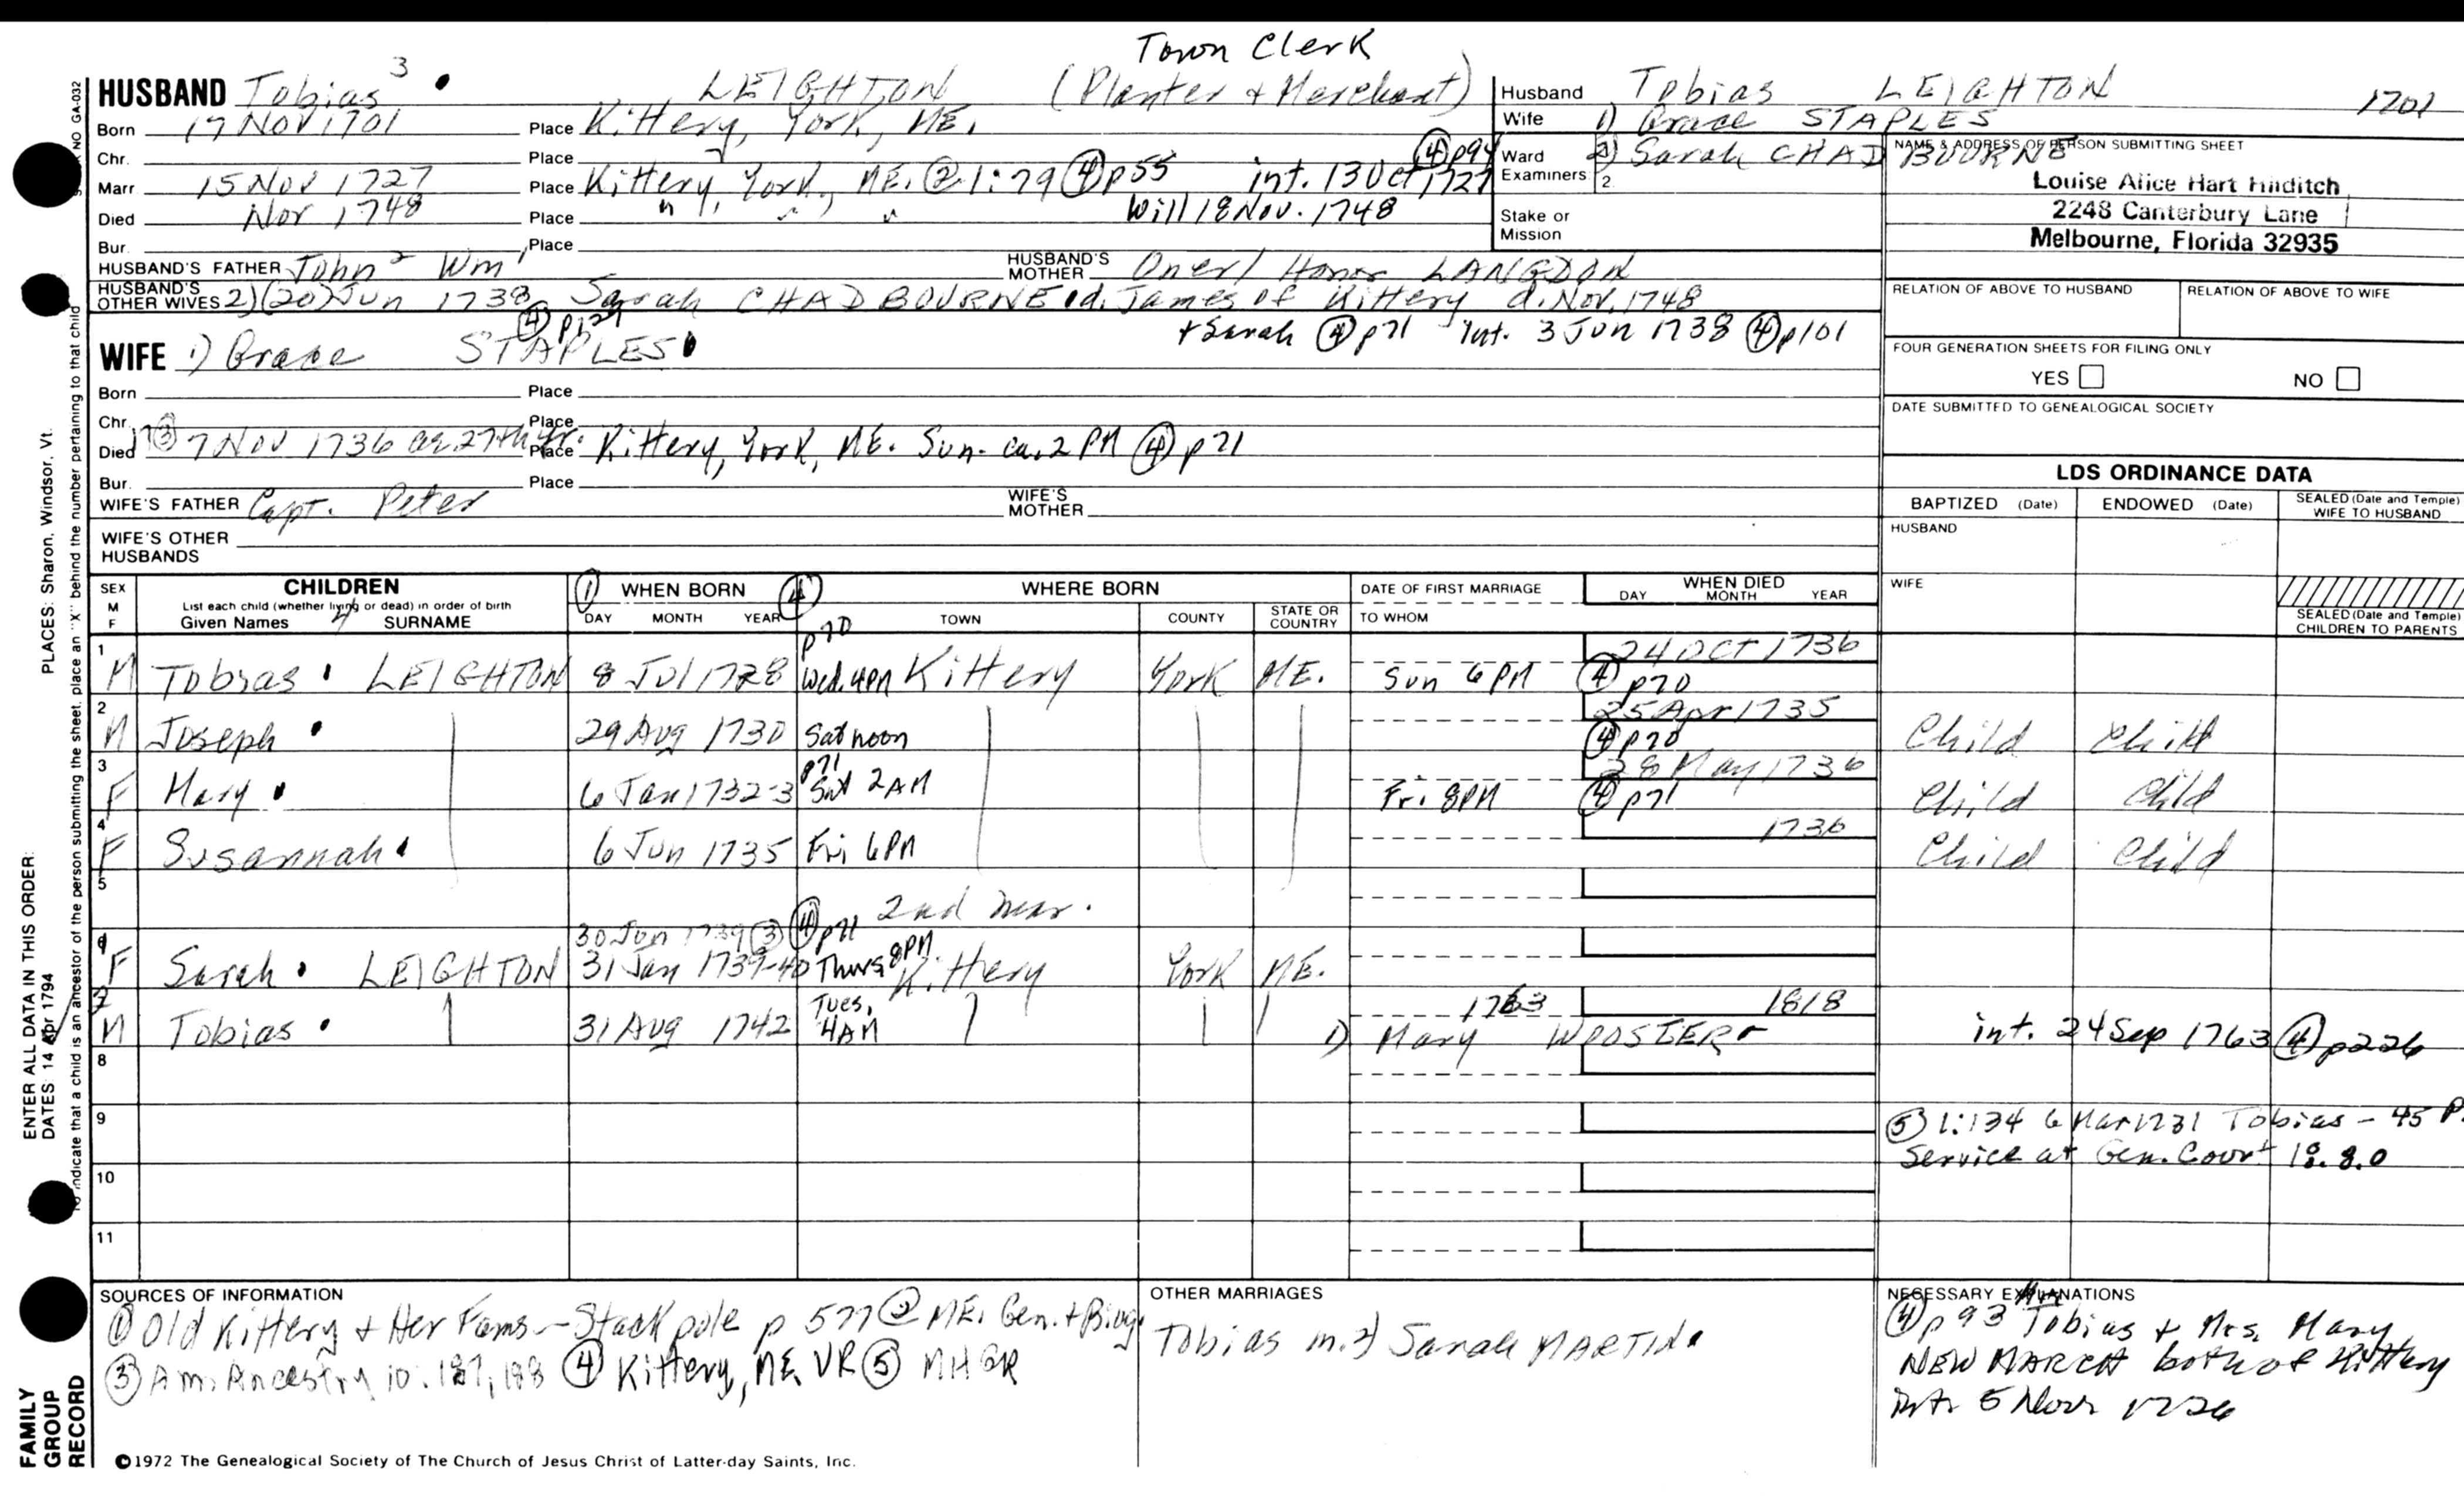 Town Clerk
HUSBAND Tobias 3 LEIGHTON (Planter + Merchant)
Born 17 Nov 1701 Place Kittery, York, ME.
Chr. Place
Marr 15 Nov 1727 Place Kittery, York, ME. ② 1:79 ④ p55 int. 13 Oct 1727 ④ p94
Died Nov 1748 Place " " " Will 18 Nov. 1748
Bur. Place
HUSBAND'S FATHER John 2 Wm 1 HUSBAND'S MOTHER Oner / Honor LANGDON
HUSBAND'S OTHER WIVES 2) (20) Jun 1738 Sarah CHADBOURNE d. James of Kittery d. Nov. 1748
④ p129 + Sarah ④ p71 Int. 3 Jun 1738 ④ p101
WIFE 1) Grace STAPLES
Born Place
Chr. Place
Died ③ 7 Nov 1736 ae 27th yr. Place Kittery, York, ME. Sun. ca. 2 PM ④ p71
Bur. Place
WIFE'S FATHER Capt. Peter WIFE'S MOTHER
WIFE'S OTHER HUSBANDS
Husband Tobias LEIGHTON 1701
Wife 1) Grace STAPLES
Ward 2) Sarah CHADBOURNE
Examiners 2
Stake or Mission
NAME & ADDRESS OF PERSON SUBMITTING SHEET
Louise Alice Hart
2248 Canterbury Lane
Melbourne, Florida 32935
RELATION OF ABOVE TO HUSBAND RELATION OF ABOVE TO WIFE
FOUR GENERATION SHEETS FOR FILING ONLY
YES NO
DATE SUBMITTED TO GENEALOGICAL SOCIETY
LDS ORDINANCE DATA
BAPTIZED (Date) ENDOWED (Date) SEALED (Date and Temple) WIFE TO HUSBAND
HUSBAND
WIFE
SEALED (Date and Temple) CHILDREN TO PARENTS
SEX M F CHILDREN ① WHEN BORN ④ WHERE BORN DATE OF FIRST MARRIAGE WHEN DIED
List each child (whether living or dead) in order of birth
Given Names 4 SURNAME DAY MONTH YEAR TOWN COUNTY STATE OR COUNTRY TO WHOM DAY MONTH YEAR
1 M Tobias LEIGHTON 8 Jul 1728 p70 Wed. 4PM Kittery York ME. Sun 6 PM 24 Oct 1736 ④ p70
2 M Joseph 29 Aug 1730 Sat noon 25 Apr 1735 ④ p70 Child Child
3 F Mary 6 Jan 1732-3 p71 Sat 2 AM Fri 8PM 28 May 1736 ④ p71 Child Child
4 F Susannah 6 Jun 1735 Fri 6PM 1736 Child Child
5
2nd mar.
6 F Sarah LEIGHTON 30 Jun 1739 ③ 31 Jan 1739-40 ④ p71 Thurs 8PM Kittery York ME.
7 M Tobias 31 Aug 1742 Tues, 4AM 1763 1) Mary WOOSTER 1818 int. 24 Sep 1763 ④ p226
8
9 ⑤ 1:134 6 Mar 1731 Tobias - 45
Service at Gen. Court 18.8.0
10
11
SOURCES OF INFORMATION
① Old Kittery + Her Fams - Stackpole p 577 ② ME. Gen. + Biog.
③ Am. Ancestry 10:187, 188 ④ Kittery, ME VR ⑤ MHGR
OTHER MARRIAGES
Tobias m. 2) Sarah MARTIN
NECESSARY EXPLANATIONS
④ p 93 Mr. Tobias + Mrs. Mary
NEWMARCH both of Kittery
Int. 5 Nov 1726
PLACES: Sharon, Windsor, Vt.
ENTER ALL DATA IN THIS ORDER:
DATES 14 Apr 1794
To indicate that a child is an ancestor of the person submitting the sheet, place an "X" behind the number pertaining to that child
NO GA-032
FAMILY GROUP RECORD
©1972 The Genealogical Society of The Church of Jesus Christ of Latter-day Saints, Inc.